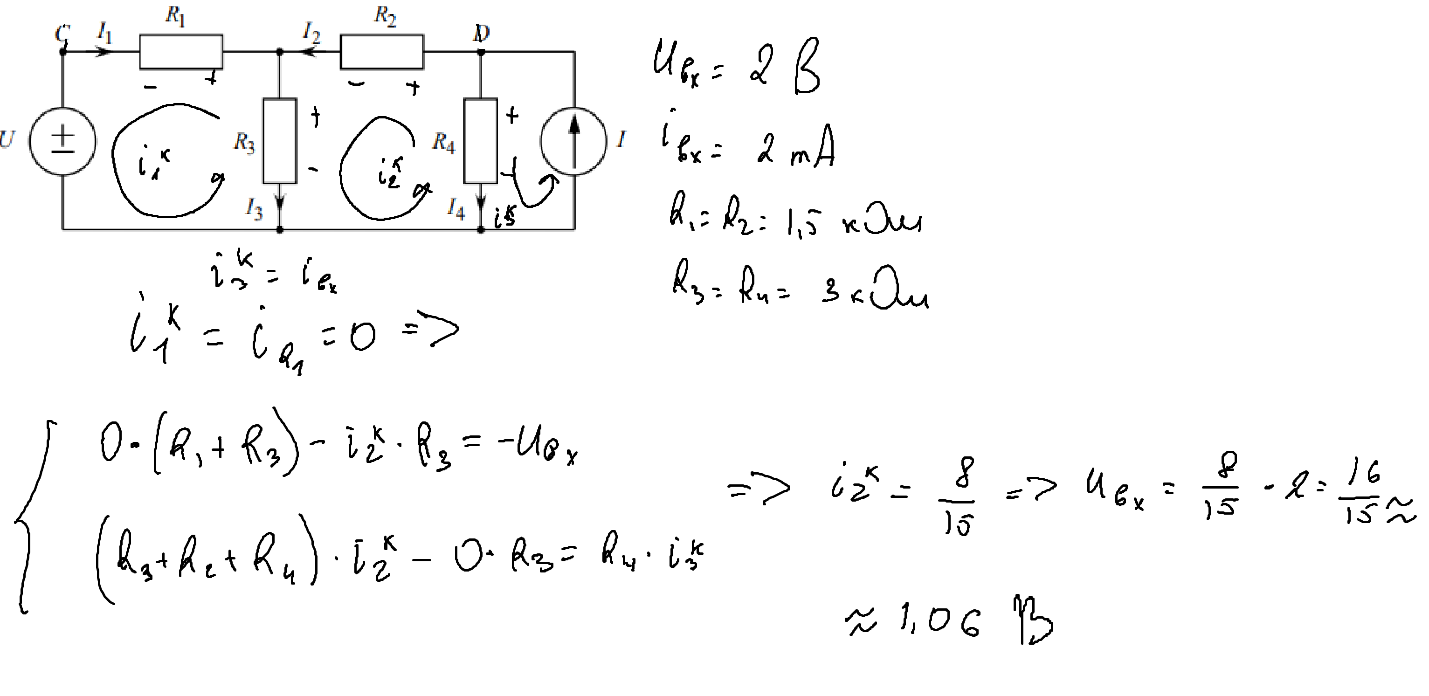 C I₁ R₁ I₂ R₂ D
- + - +
U ± i₁ᴷ R₃ + - i₂ᴷ R₄ + I
I₃ I₄ i₃ᴷ
Uвх = 2 В
iвх = 2 mA
R₁ = R₂ = 1,5 кОм
R₃ = R₄ = 3 кОм
i₃ᴷ = iвх
i₁ᴷ = i_R₁ = 0 =>
0·(R₁ + R₃) - i₂ᴷ · R₃ = -Uвх
(R₃ + R₂ + R₄) · i₂ᴷ - 0 · R₃ = R₄ · i₃ᴷ
=> i₂ᴷ = 8/15 => Uвх = 8/15 · 2 = 16/15 ≈
≈ 1,06 В